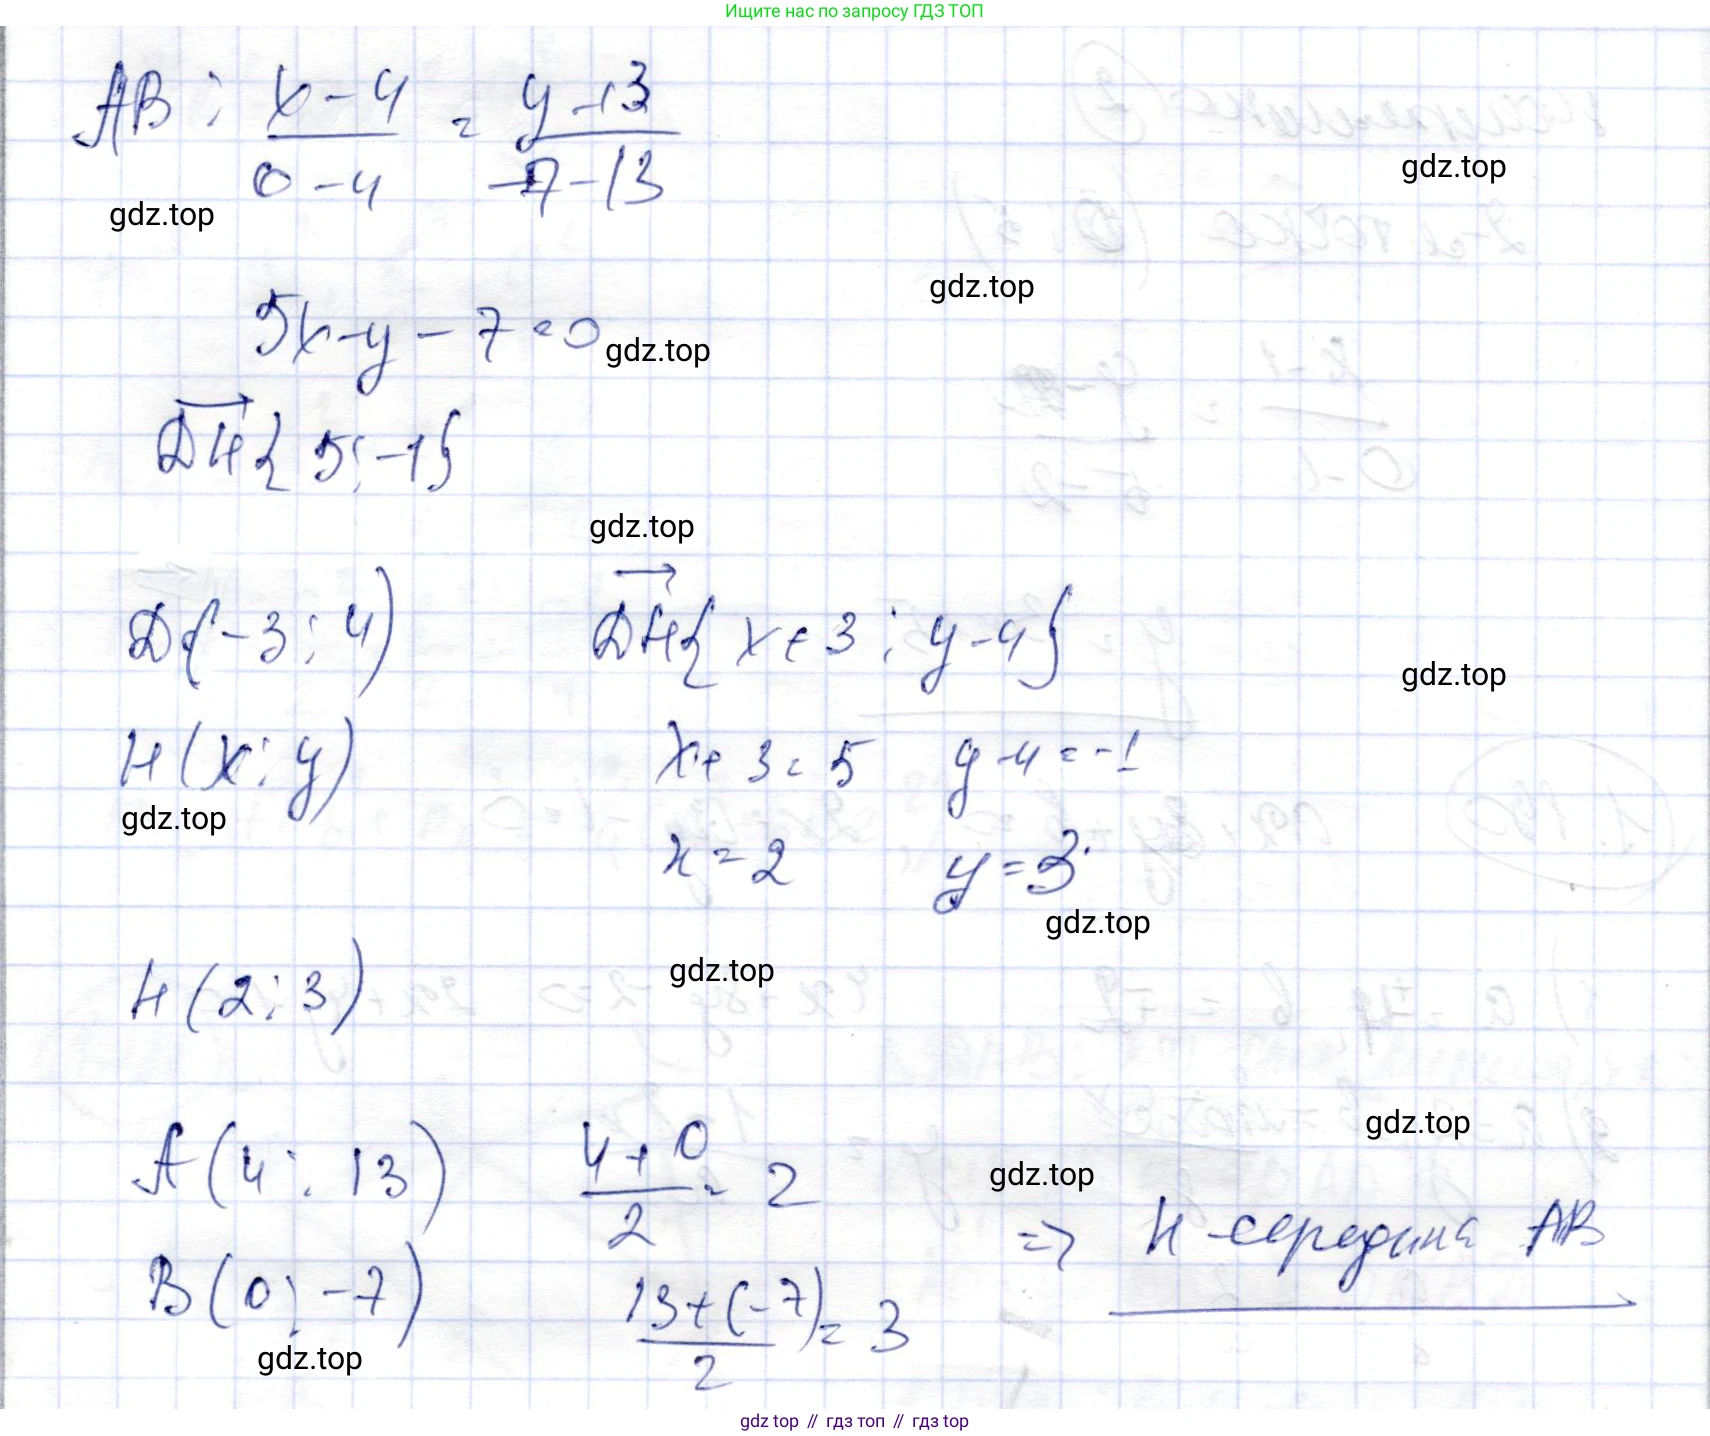 Ищите нас по запросу ГДЗ ТОП
AB : (x-4)/(0-4) = (y-13)/(-7-13)
gdz.top
gdz.top
gdz.top
5x-y-7=0 gdz.top
DH{5;-1}
gdz.top
D(-3;4) DH{x+3; y-4}
gdz.top
H(x;y) x+3=5 y-4=-1
gdz.top
x=2 y=3
gdz.top
gdz.top
H(2;3)
gdz.top
A(4;13) (4+0)/2=2
gdz.top
=> H-середина AB
B(0;-7) (13+(-7))/2=3
gdz.top
gdz top // гдз топ // gdz top